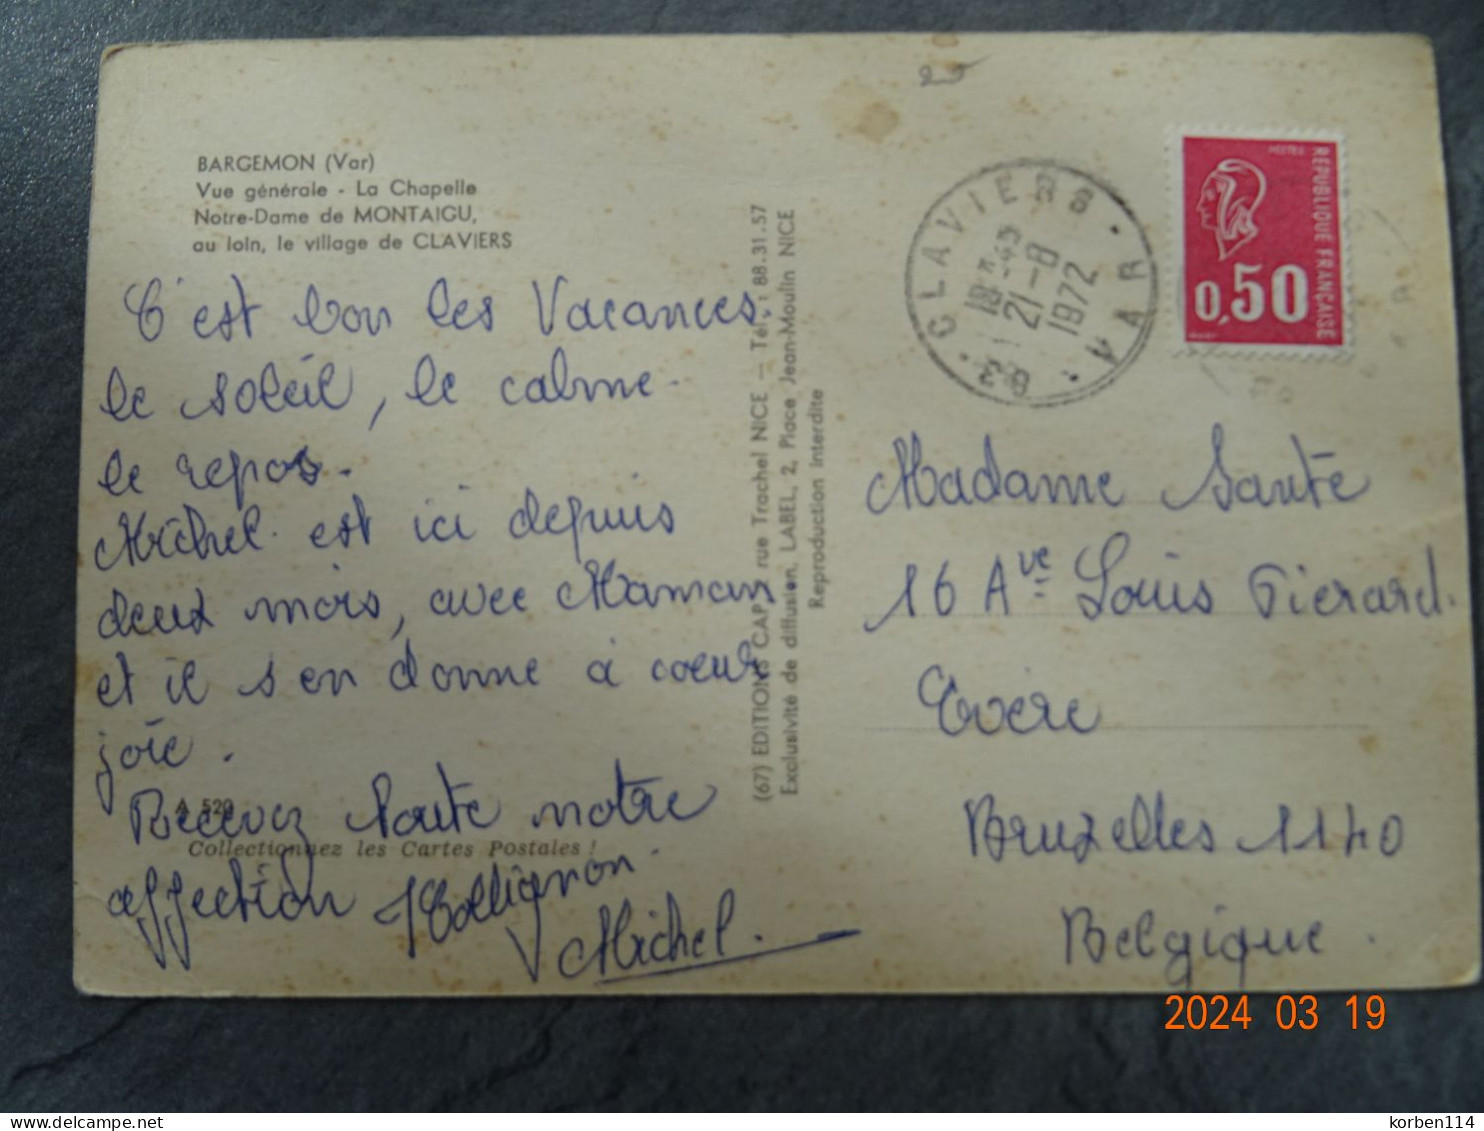 BARGEMON (Var)
Vue générale - La Chapelle
Notre-Dame de MONTAIGU,
au loin, le village de CLAVIERS
C'est bon les Vacances.
le soleil, le calme.
le repos.
Michel est ici depuis
deux mois, avec Maman
et il s'en donne à coeur
joie.
Recevez toute notre
affection
Michel.
A 520
Collectionnez les Cartes Postales !
(67) EDITIONS CAP, rue Trachel NICE - Tél. : 88.31.57
Exclusivité de diffusion. LABEL, 2, Place Jean-Moulin NICE
Reproduction interdite
CLAVIERS · VAR
18H45
21-8
1972
83
REPUBLIQUE FRANÇAISE
0,50
Madame Santé
16 Ave Louis Piérard.
Evère
Bruxelles 1140
Belgique.
2024 03 19
korben114